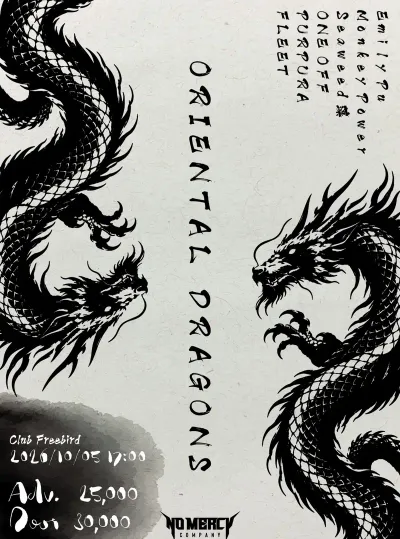 EmilyPu
MonkeyPower
Seaweed猿
ONEOFF
PURPURA
FLEET
ORIENTAL DRAGONS
Club Freebird
2026/10/05 17:00
Adv. 25,000
Door 30,000
NO MERCY
COMPANY